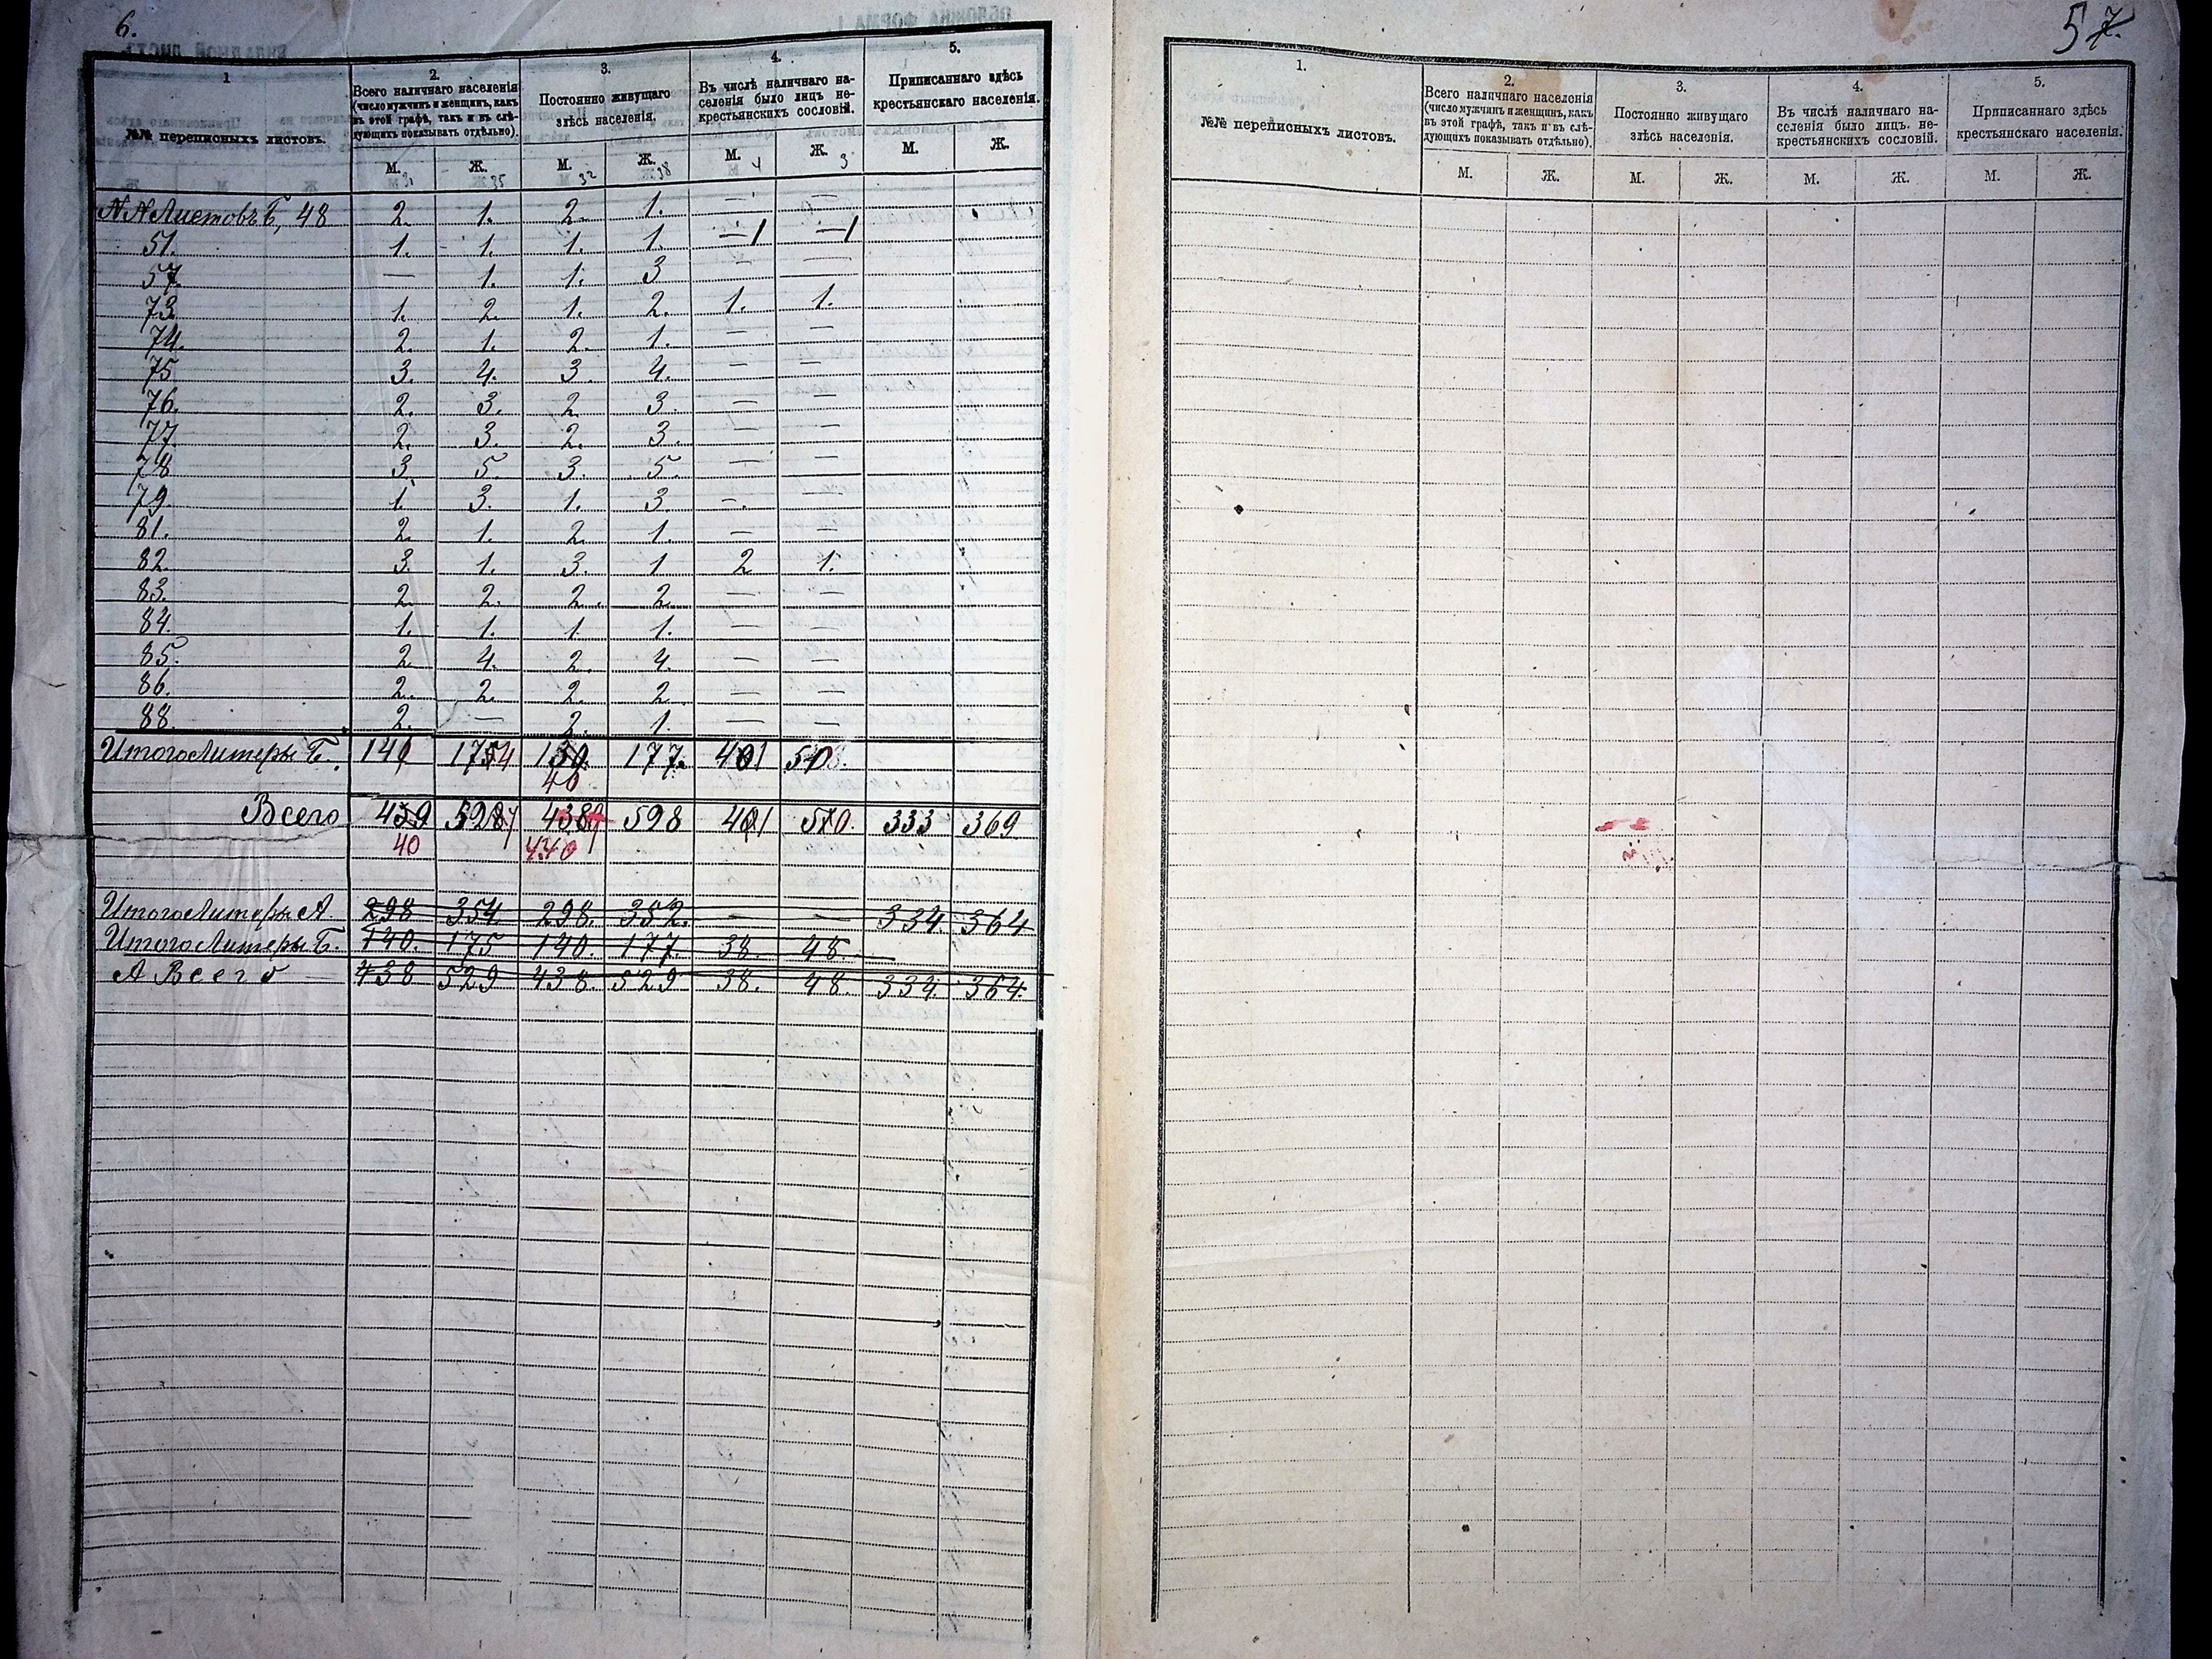 6.
1
№№ переписныхъ листовъ.
2.
Всего наличнаго населенія
(число мужчинъ и женщинъ, какъ
въ этой графѣ, такъ и въ слѣ-
дующихъ показывать отдѣльно).
3.
Постоянно живущаго
здѣсь населенія.
4.
Въ числѣ наличнаго на-
селенія было лицъ не-
крестьянскихъ сословій.
5.
Приписаннаго здѣсь
крестьянскаго населенія.
М. Ж. М. Ж. М. Ж. М. Ж.
31 35 32 38 4 3
NN Листовъ Б, 48 2. 1. 2. 1. — —
51. 1. 1. 1. 1. —1 —1
57. — 1. 1. 3 — —
73. 1. 2. 1. 2. 1. 1.
74. 2. 1. 2. 1. — —
75 3. 4. 3. 4. — —
76. 2. 3. 2. 3. — —
77. 2. 3. 2. 3. — —
78 3. 5. 3. 5. — —
79. 1. 3. 1. 3 — —
81. 2. 1. 2. 1. — —
82. 3. 1. 3. 1 2 1.
83. 2. 2. 2. 2. — —
84. 1. 1. 1. 1. — —
85. 2 4. 2. 4. — —
86. 2. 2. 2. 2 — —
88. 2. — 2. 1. — —
Итого Литеры Б. 177.
40
Всего 598 333 369
40 440
Итого Литеры А. 298 354 298. 352. — — 334. 364
Итого Литеры Б. 140. 175 140. 177. 38. 48. —
А Всего 438 529 438. 529 38. 48. 334. 364.
57.
1.
№№ переписныхъ листовъ.
2.
Всего наличнаго населенія
(число мужчинъ и женщинъ, какъ
въ этой графѣ, такъ и въ слѣ-
дующихъ показывать отдѣльно).
3.
Постоянно живущаго
здѣсь населенія.
4.
Въ числѣ наличнаго на-
селенія было лицъ. не-
крестьянскихъ сословій.
5.
Приписаннаго здѣсь
крестьянскаго населенія.
М. Ж. М. Ж. М. Ж. М. Ж.